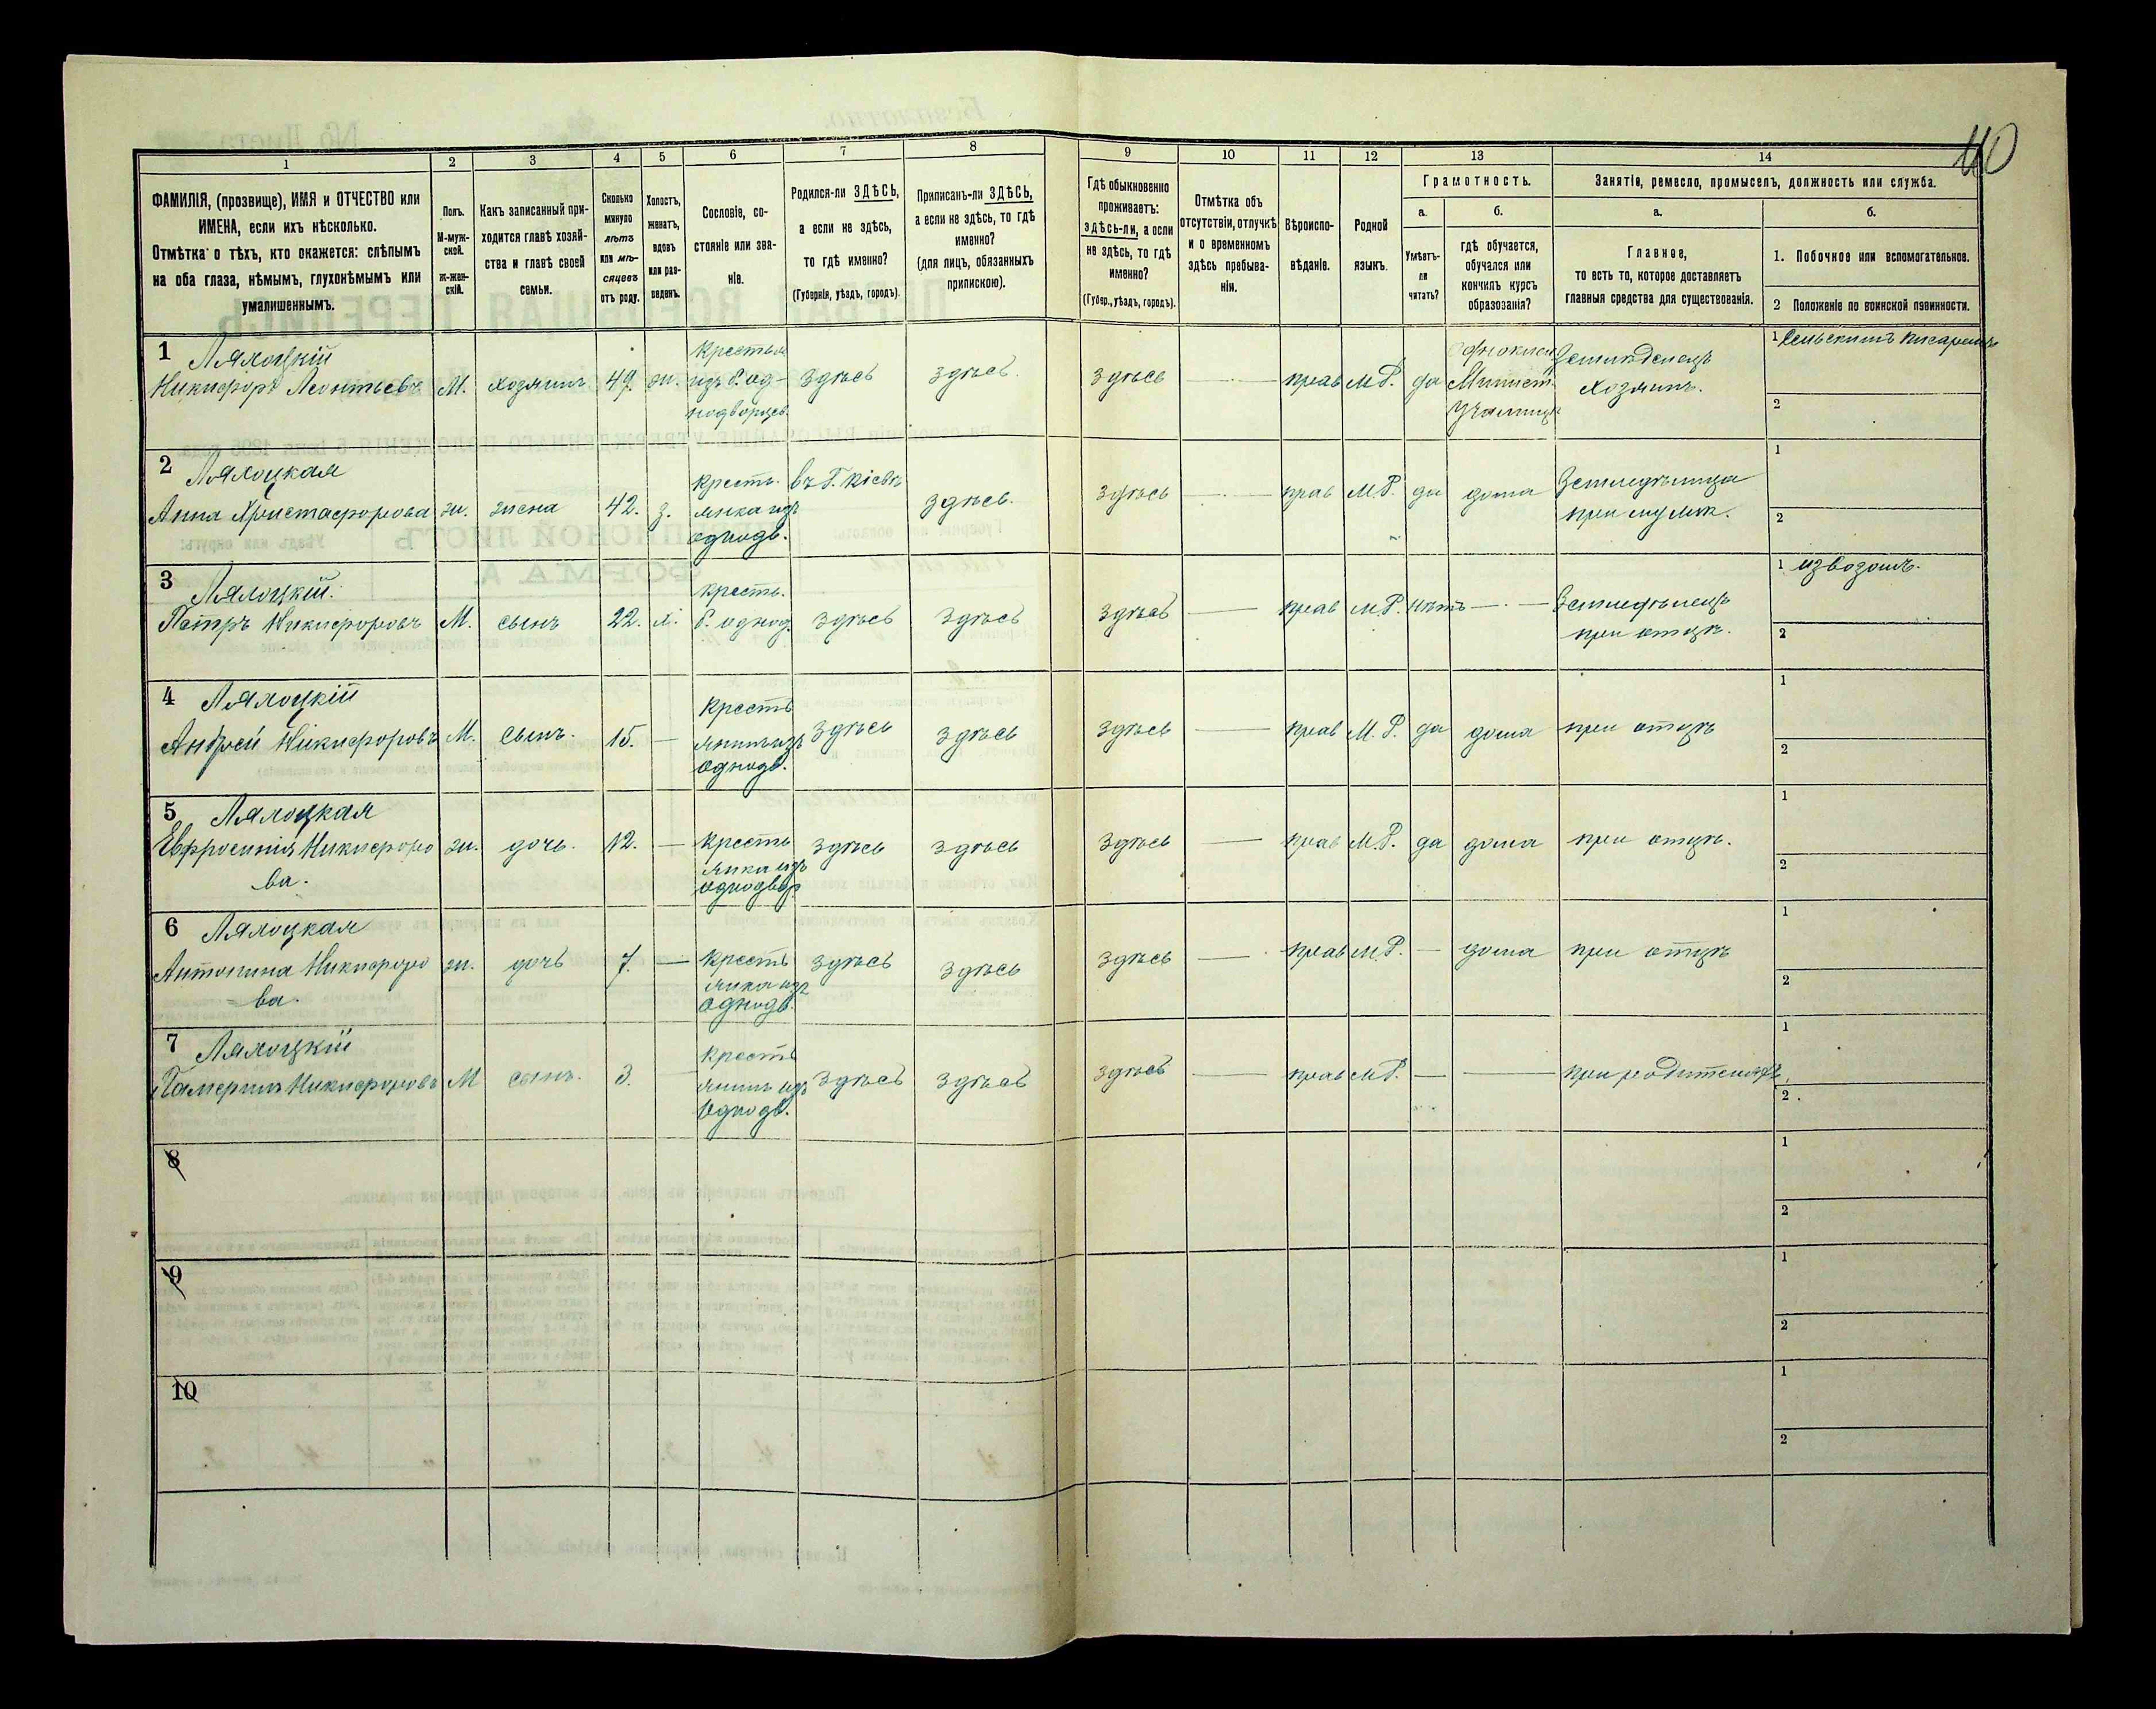 40
1 2 3 4 5 6 7 8 9 10 11 12 13 14
ФАМИЛІЯ, (прозвище), ИМЯ и ОТЧЕСТВО или
ИМЕНА, если ихъ нѣсколько.
Отмѣтка о тѣхъ, кто окажется: слѣпымъ
на оба глаза, нѣмымъ, глухонѣмымъ или
умалишеннымъ.
Полъ.
М-муж-
ской.
Ж-жен-
скій.
Какъ записанный при-
ходится главѣ хозяй-
ства и главѣ своей
семьи.
Сколько
минуло
лѣтъ
или мѣ-
сяцевъ
отъ роду.
Холостъ,
женатъ,
вдовъ
или раз-
веденъ.
Сословіе, со-
стояніе или зва-
ніе.
Родился-ли ЗДѢСЬ,
а если не здѣсь,
то гдѣ именно?
(Губернія, уѣздъ, городъ).
Приписанъ-ли ЗДѢСЬ,
а если не здѣсь, то гдѣ
именно?
(для лицъ, обязанныхъ
припискою).
Гдѣ обыкновенно
проживаетъ:
здѣсь-ли, а если
не здѣсь, то гдѣ
именно?
(Губер., уѣздъ, городъ).
Отмѣтка объ
отсутствіи, отлучкѣ
и о временномъ
здѣсь пребыва-
ніи.
Вѣроиспо-
вѣданіе.
Родной
языкъ.
Грамотность.
а.
Умѣетъ-
ли
читать?
б.
гдѣ обучается,
обучался или
кончилъ курсъ
образованія?
Занятіе, ремесло, промыселъ, должность или служба.
а.
Главное,
то есть то, которое доставляетъ
главныя средства для существованія.
б.
1. Побочное или вспомогательное.
2 Положеніе по воинской повинности.
1 Ляхоцкій
Никифоръ Леонтьевъ
М.
хозяинъ
49.
ж.
Крестьян
изъ б. од-
нодворцев.
здѣсь
здѣсь.
здѣсь
прав
М.Р.
да
Однокласн
Минист.
Училищѣ
Земледелецъ
хозяинъ.
1 Сельскимъ писаремъ
2
2 Ляхоцкая
Анна Христафорова
ж.
жена
42.
з.
Кресть.
янка изъ
однодв.
въ г. Кіевѣ
здѣсь.
здѣсь
прав
М.Р.
да
дома
Земледѣлица
при мужѣ.
1
2
3 Ляхоцкій.
Петръ Никифоровъ
М.
сынъ
22.
х.
кресть.
б. однод.
здѣсь
здѣсь
здѣсь
прав
М.Р.
нѣтъ
Земледѣлецъ
при отцѣ.
1 извозомъ.
2
4 Ляхоцкій
Андрей Никифоровъ
М.
сынъ.
15.
Кресть
янинъ изъ
однодв.
здѣсь
здѣсь
здѣсь
прав
М.Р.
да
дома
при отцѣ
1
2
5 Ляхоцкая
Евфросинія Никифоро
ва.
ж.
дочь.
12.
Кресть
янка изъ
однодвор
здѣсь
здѣсь
здѣсь
прав
М.Р.
да
дома
при отцѣ.
1
2
6 Ляхоцкая
Антонина Никифоро
ва.
ж.
дочь
7.
Кресть
янка изъ
однодв.
здѣсь
здѣсь
здѣсь
прав
М.Р.
дома
при отцѣ
1
2
7 Ляхоцкій
Никифоровъ
М
сынъ.
3.
Кресть
янинъ изъ
однодв.
здѣсь
здѣсь
здѣсь
прав
М.Р.
при родителяхъ
1
2
8
1
2
9
1
2
10
1
2